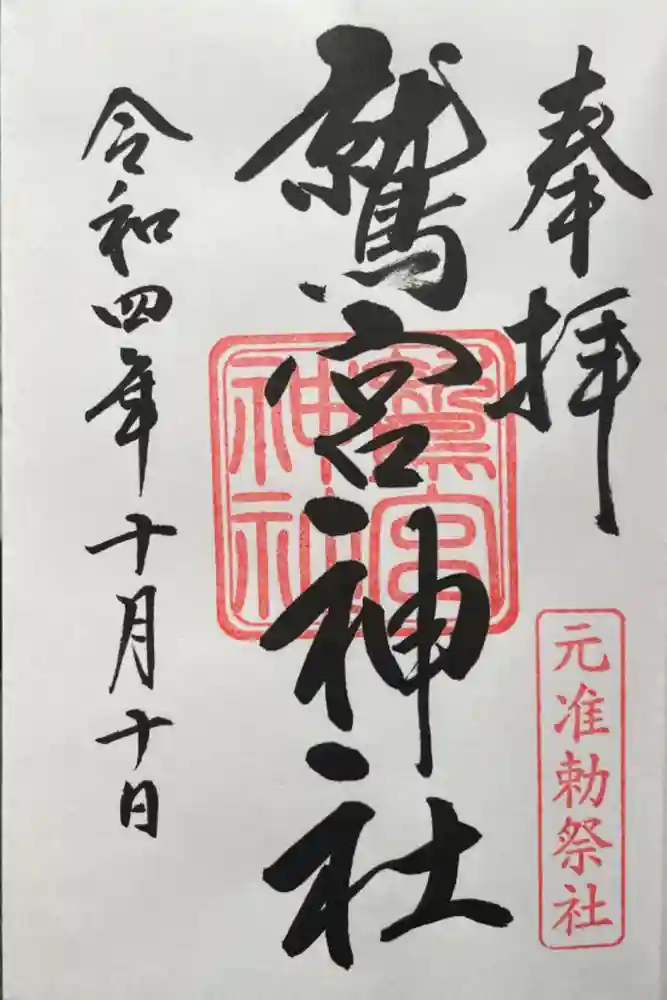 奉拝
元准勅祭社
鷲宮神社
鷲宮
神社
令和四年十月十日